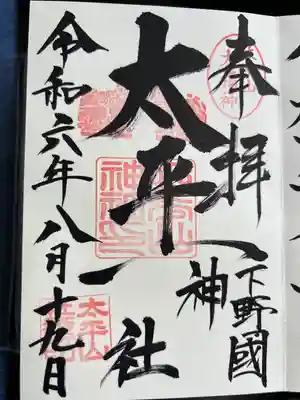 奉拝
下野國
太平神社
令和六年八月十九日
太平山